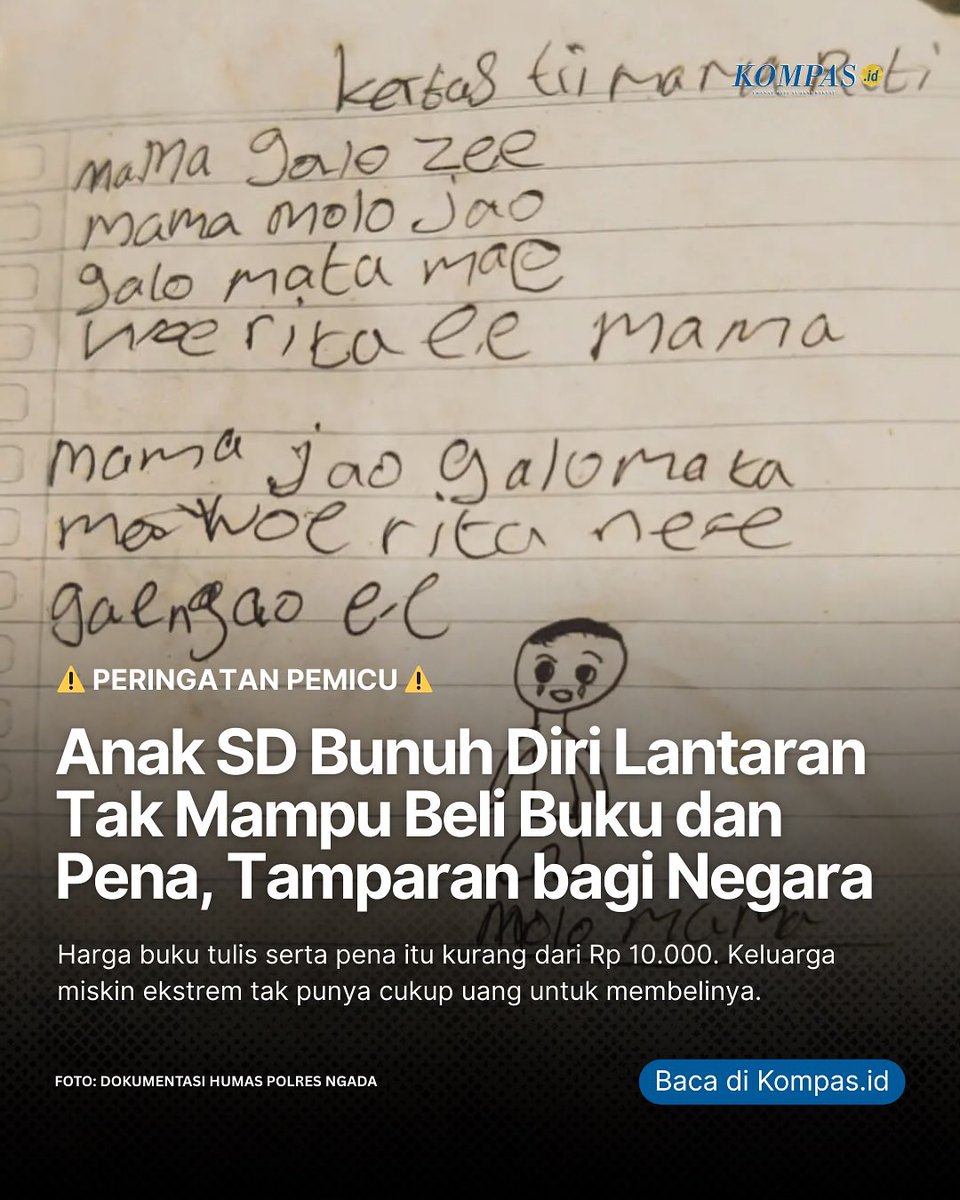 kertas tii mama Reti
KOMPAS.id
mama galo zee
mama molo jao
galo mata mae
woe rita ee mama
mama jao galo mata
mae woe rita nee
gaengao ee
⚠️ PERINGATAN PEMICU ⚠️
Anak SD Bunuh Diri Lantaran
Tak Mampu Beli Buku dan
Pena, Tamparan bagi Negara
molo mama
Harga buku tulis serta pena itu kurang dari Rp 10.000. Keluarga
miskin ekstrem tak punya cukup uang untuk membelinya.
FOTO: DOKUMENTASI HUMAS POLRES NGADA
Baca di Kompas.id